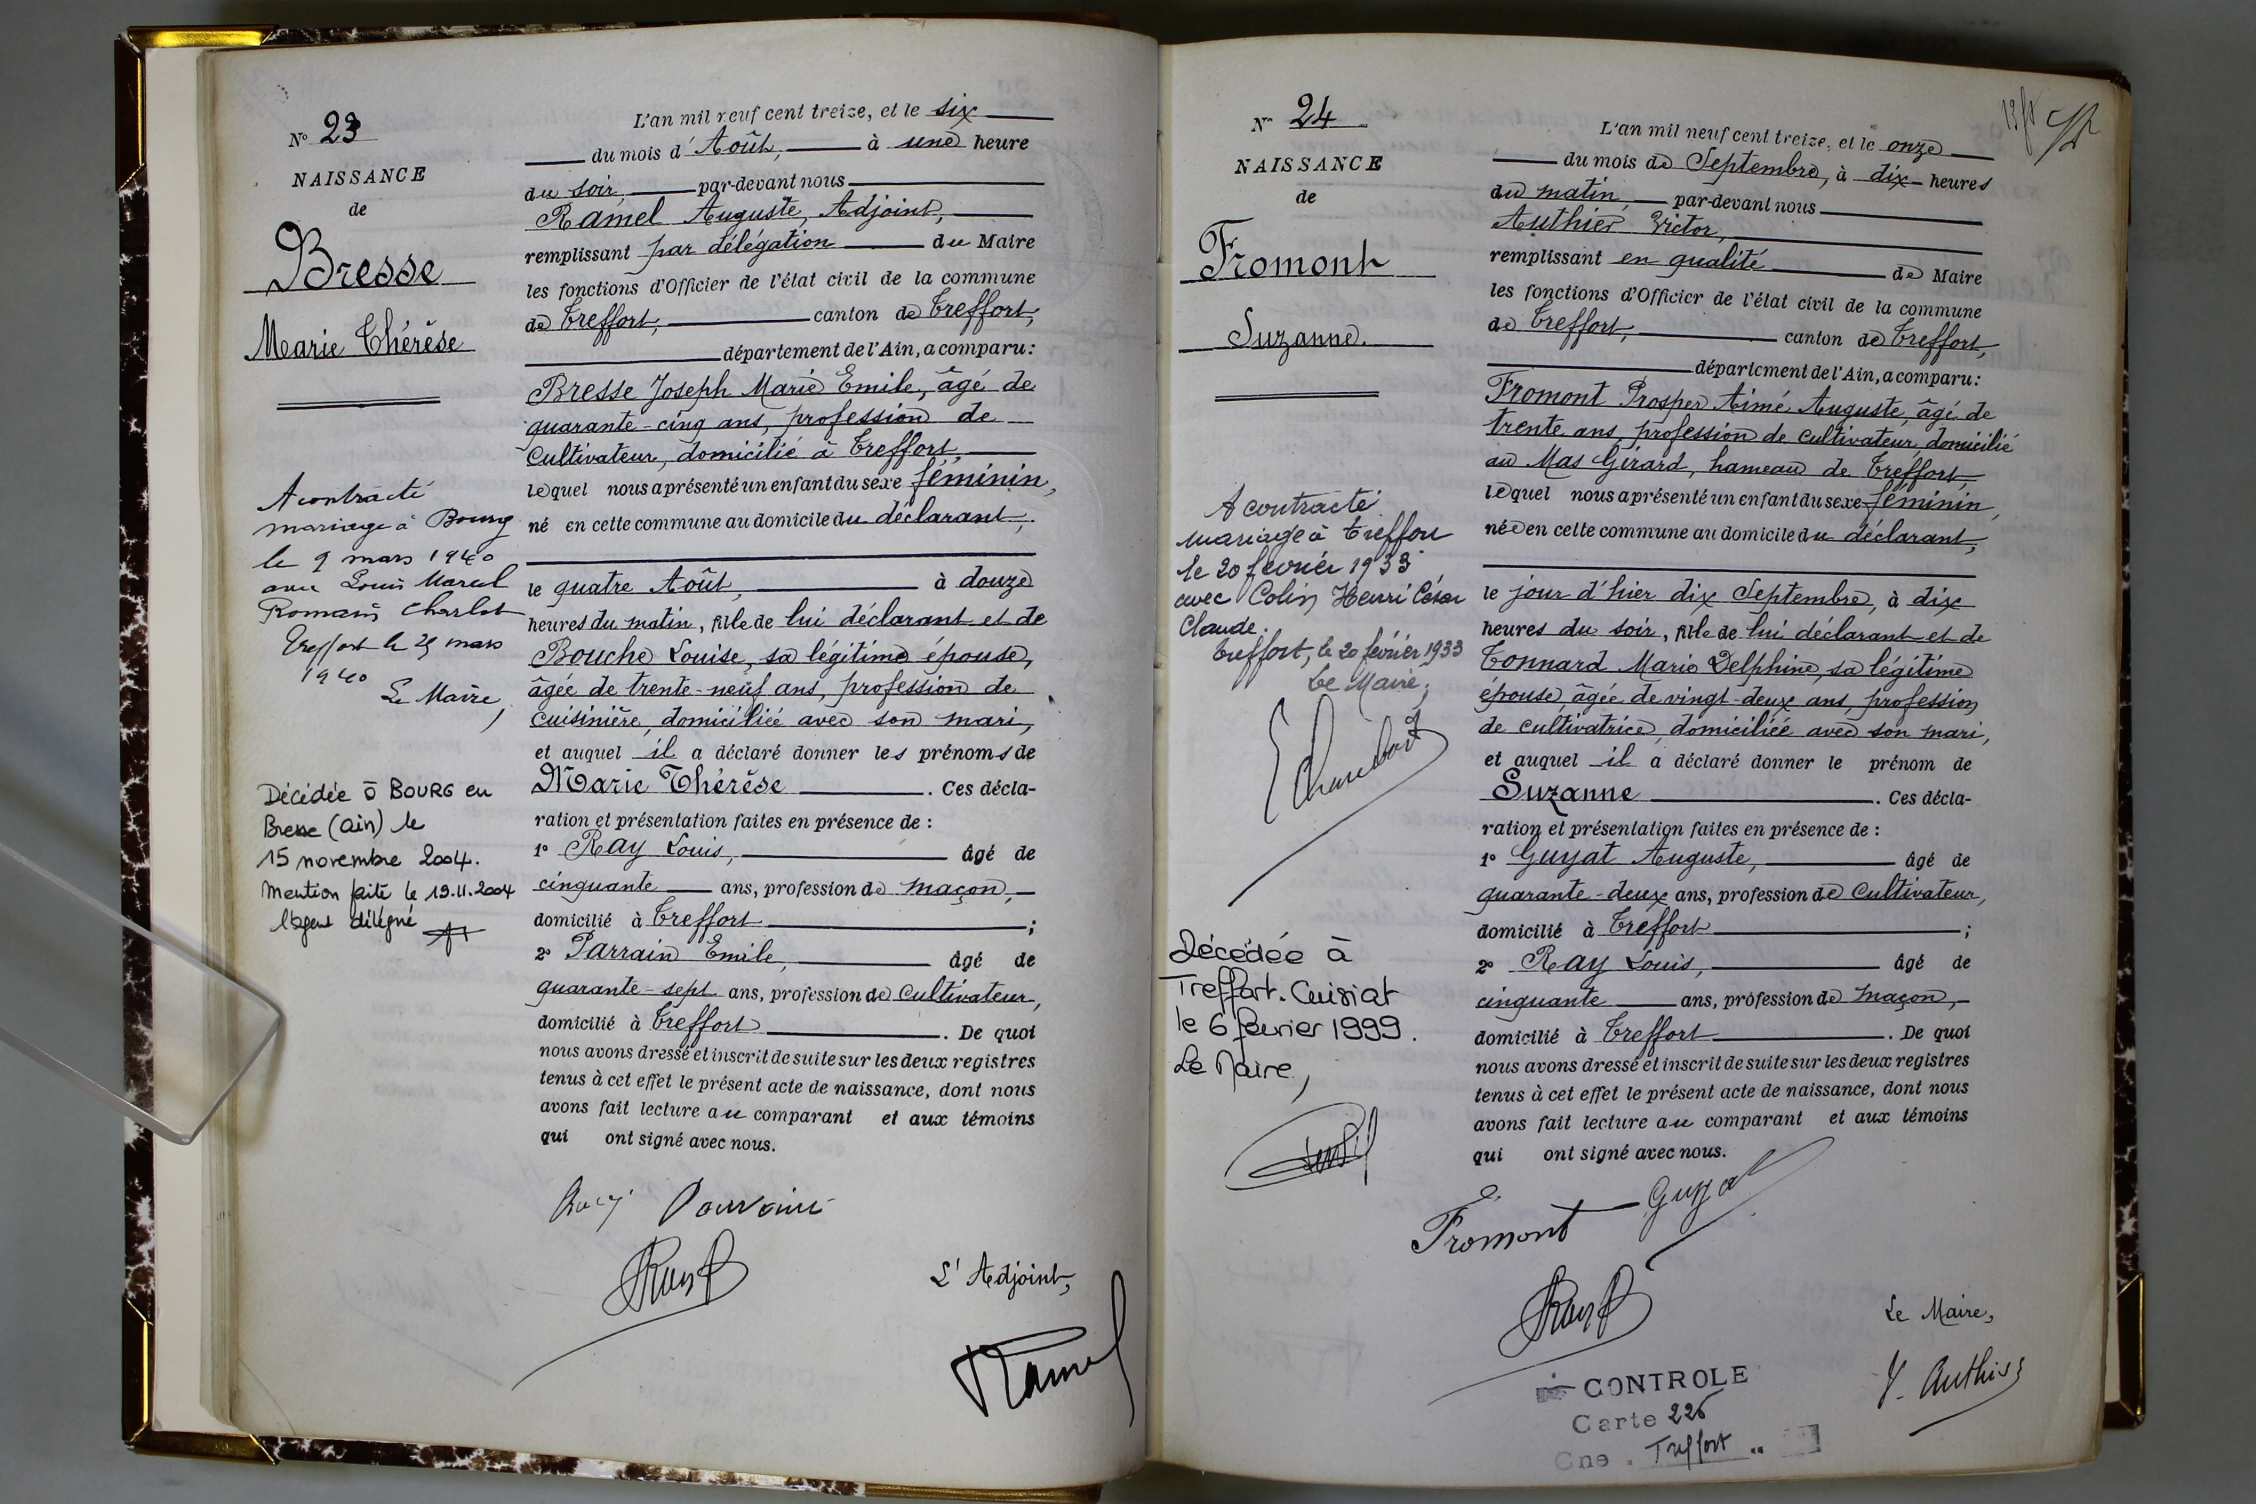 N° 23
NAISSANCE
de
Bresse
Marie Thérèse
A contracté
mariage à Bourg
le 9 mars 1940
avec Louis Marcel
Romain Charlet
Treffort le 25 mars
1940
Le Maire,
Décédée à BOURG en
Bresse (Ain) le
15 novembre 2004.
Mention faite le 19.11.2004
l'agent délégué
L'an mil neuf cent treize, et le six
du mois d'Août, à une heure
du soir, par-devant nous
Ramel Auguste, Adjoint,
remplissant par délégation du Maire
les fonctions d'Officier de l'état civil de la commune
de Treffort, canton de Treffort,
département de l'Ain, a comparu :
Bresse Joseph Marie Emile, âgé de
quarante-cinq ans, profession de
Cultivateur, domicilié à Treffort,
lequel nous a présenté un enfant du sexe féminin,
né en cette commune au domicile du déclarant,
le quatre Août, à douze
heures du matin, fille de lui déclarant et de
Bouche Louise, sa légitime épouse,
âgée de trente-neuf ans, profession de
cuisinière, domiciliée avec son mari,
et auquel il a déclaré donner les prénoms de
Marie Thérèse. Ces décla-
ration et présentation faites en présence de :
1° Ray Louis, âgé de
cinquante ans, profession de maçon,
domicilié à Treffort ;
2° Parrain Emile, âgé de
quarante-sept ans, profession de Cultivateur,
domicilié à Treffort. De quoi
nous avons dressé et inscrit de suite sur les deux registres
tenus à cet effet le présent acte de naissance, dont nous
avons fait lecture au comparant et aux témoins
qui ont signé avec nous.
Parrain
Ray
L'Adjoint,
Ramel
N° 24
NAISSANCE
de
Fromont
Suzanne.
A contracté
mariage à Treffort
le 20 février 1933
avec Colin Henri César
Claude.
Treffort, le 20 février 1933
Le Maire,
Décédée à
Treffort-Cuisiat
le 6 février 1999.
Le Maire,
L'an mil neuf cent treize, et le onze
du mois de Septembre, à dix heures
du matin, par-devant nous
Authier Victor,
remplissant en qualité de Maire
les fonctions d'Officier de l'état civil de la commune
de Treffort, canton de Treffort,
département de l'Ain, a comparu :
Fromont Prosper Aimé Auguste, âgé de
trente ans, profession de cultivateur, domicilié
au Mas Gérard, hameau de Treffort,
lequel nous a présenté un enfant du sexe féminin,
née en cette commune au domicile du déclarant,
le jour d'hier dix Septembre, à dix
heures du soir, fille de lui déclarant et de
Tonnard Marie Delphine, sa légitime
épouse, âgée de vingt-deux ans, profession
de cultivatrice, domiciliée avec son mari,
et auquel il a déclaré donner le prénom de
Suzanne. Ces décla-
ration et présentation faites en présence de :
1° Guyat Auguste, âgé de
quarante-deux ans, profession de Cultivateur,
domicilié à Treffort ;
2° Ray Louis, âgé de
cinquante ans, profession de maçon,
domicilié à Treffort. De quoi
nous avons dressé et inscrit de suite sur les deux registres
tenus à cet effet le présent acte de naissance, dont nous
avons fait lecture au comparant et aux témoins
qui ont signé avec nous.
Fromont Guyat
Ray
Le Maire,
V. Authier
CONTROLE
Carte 226
Cne. Treffort